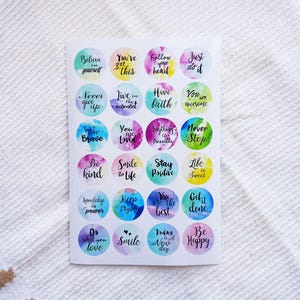 Believe in yourself
You've got this
Follow your heart
Just do it
Never give up
Live in the moment
Have faith
You are awesome
You are Brave
You are Loved
Anything is Possible
Never Stop
Be kind
Smile to Life
Stay Positive
Life is Sweet
Knowledge is power
Keep Trying
You are the best
Get it done
Do what you love
Smile
Today is your day
Be Happy